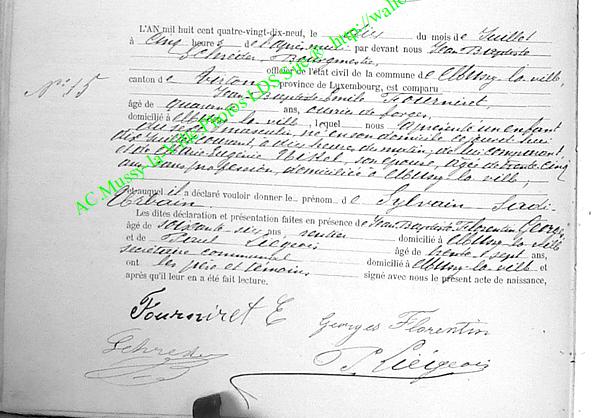 L'AN mil huit cent quatre-vingt-dix-neuf, le dix du mois de Juillet
à cinq heures de l'après-midi par devant nous Jean Baptiste
Schréder, Bourgmestre
officier de l'état civil de la commune de Mussy-la-ville,
N° 15
canton de Virton province de Luxembourg, est comparu
Jean-Baptiste Emile Fourniret
âgé de quarante ans, ouvrier de forges,
domicilié à Mussy-la-ville, lequel nous a présenté un enfant
du sexe masculin, né en son domicile ce jourd'hui
dix Juillet courant, à dix heures du matin, de lui comparant
et de Marie Eugénie Nickel, son épouse, âgée de trente cinq
ans, sans profession, domiciliée à Mussy-la-ville,
et auquel il a déclaré vouloir donner le prénom de Sylvain Sadi-
Urbain
Les dites déclaration et présentation faites en présence de Jean-Baptiste Florentin Georges
âgé de soixante-six ans, rentier domicilié à Mussy-la-ville
et de Paul Liégeois âgé de trente-sept ans,
secrétaire communal domicilié à Mussy-la-ville et
ont les père et témoins signé avec nous le présent acte de naissance,
après qu'il leur en a été fait lecture.
Fourniret E
Georges Florentin
Schréder
P. Liégeois
AC.Mussy-la-Ville Photos LDS Sur © http://walle